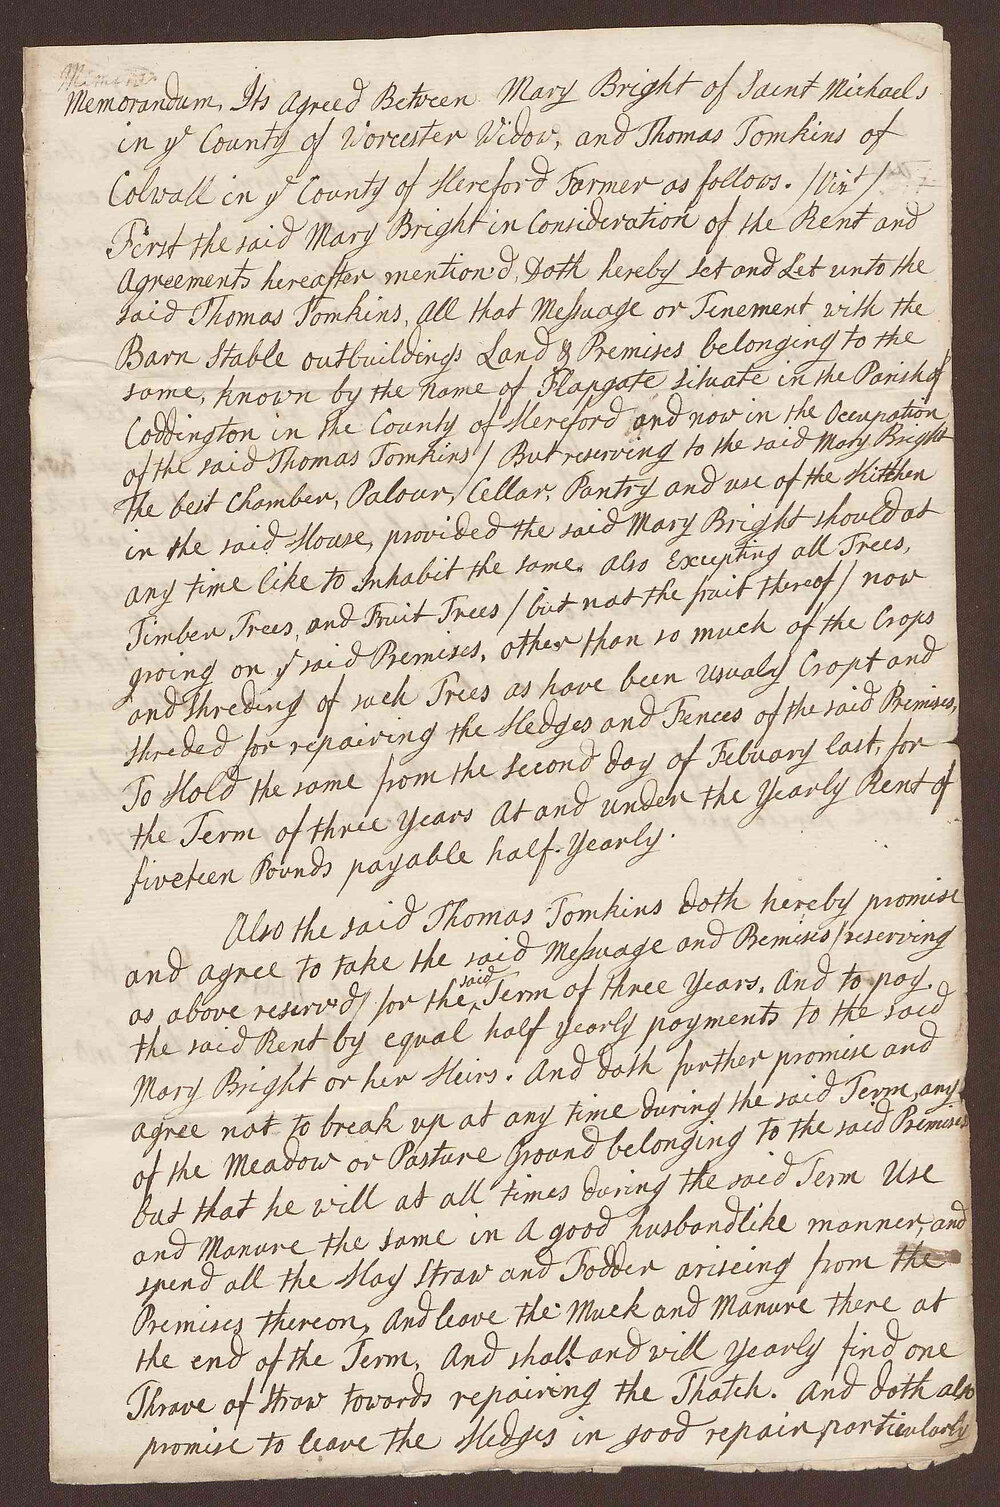 Memora
Memorandum, Its Agreed Between Mary Bright of Saint Michaels
in ye County of Worcester Widow, and Thomas Tomkins of
Colwall in ye County of Hereford Farmer as follows. /Vizt/
First the said Mary Bright in Consideration of the Rent and
Agreements hereafter mention'd, Doth hereby Set and Let unto the
said Thomas Tomkins, All that Messuage or Tenement with the
Barn Stable outbuildings Land & Premises belonging to the
same, known by the name of Flapgate situate in the Parish of
Coddington in the County of Hereford and now in the Occupation
of the said Thomas Tomkins / But reserving to the said Mary Bright
The best Chamber, Palour, Cellar, Pantry and use of the Kitchen
in the said House, provided the said Mary Bright should at
any time like to Inhabit the same. also Excepting all Trees,
Timber Trees, and Fruit Trees / but not the fruit thereof / now
groing on ye said Premises, other than so much of the Crops
and shreding of such Trees as have been usualy Cropt and
shreded for repairing the Hedges and Fences of the said Premises,
To Hold the same from the second day of Febuary last, for
the Term of three years At and under the Yearly Rent of
fiveteen Pounds payable half-Yearly.
Also the said Thomas Tomkins doth hereby promise
and agree to take the said Messuage and Premises /reserving
as above reserv'd/ for the said Term of three Years. And to pay
the said Rent by equal half yearly payments to the said
Mary Bright or her Heirs. And doth further promise and
agree not to break up at any time during the said Term, any
of the Meadow or Pasture Ground belonging to the said Premises
but that he will at all times during the said Term Use
and Manure the same in A good husbandlike manner, and
spend all the Hay Straw and Fodder ariseing from the
Premises thereon, And leave the Muck and Manure there at
the end of the Term, And shall and will Yearly find one
Thrave of Straw towards repairing the Thatch. And doth also
promise to leave the Hedges in good repair particularly